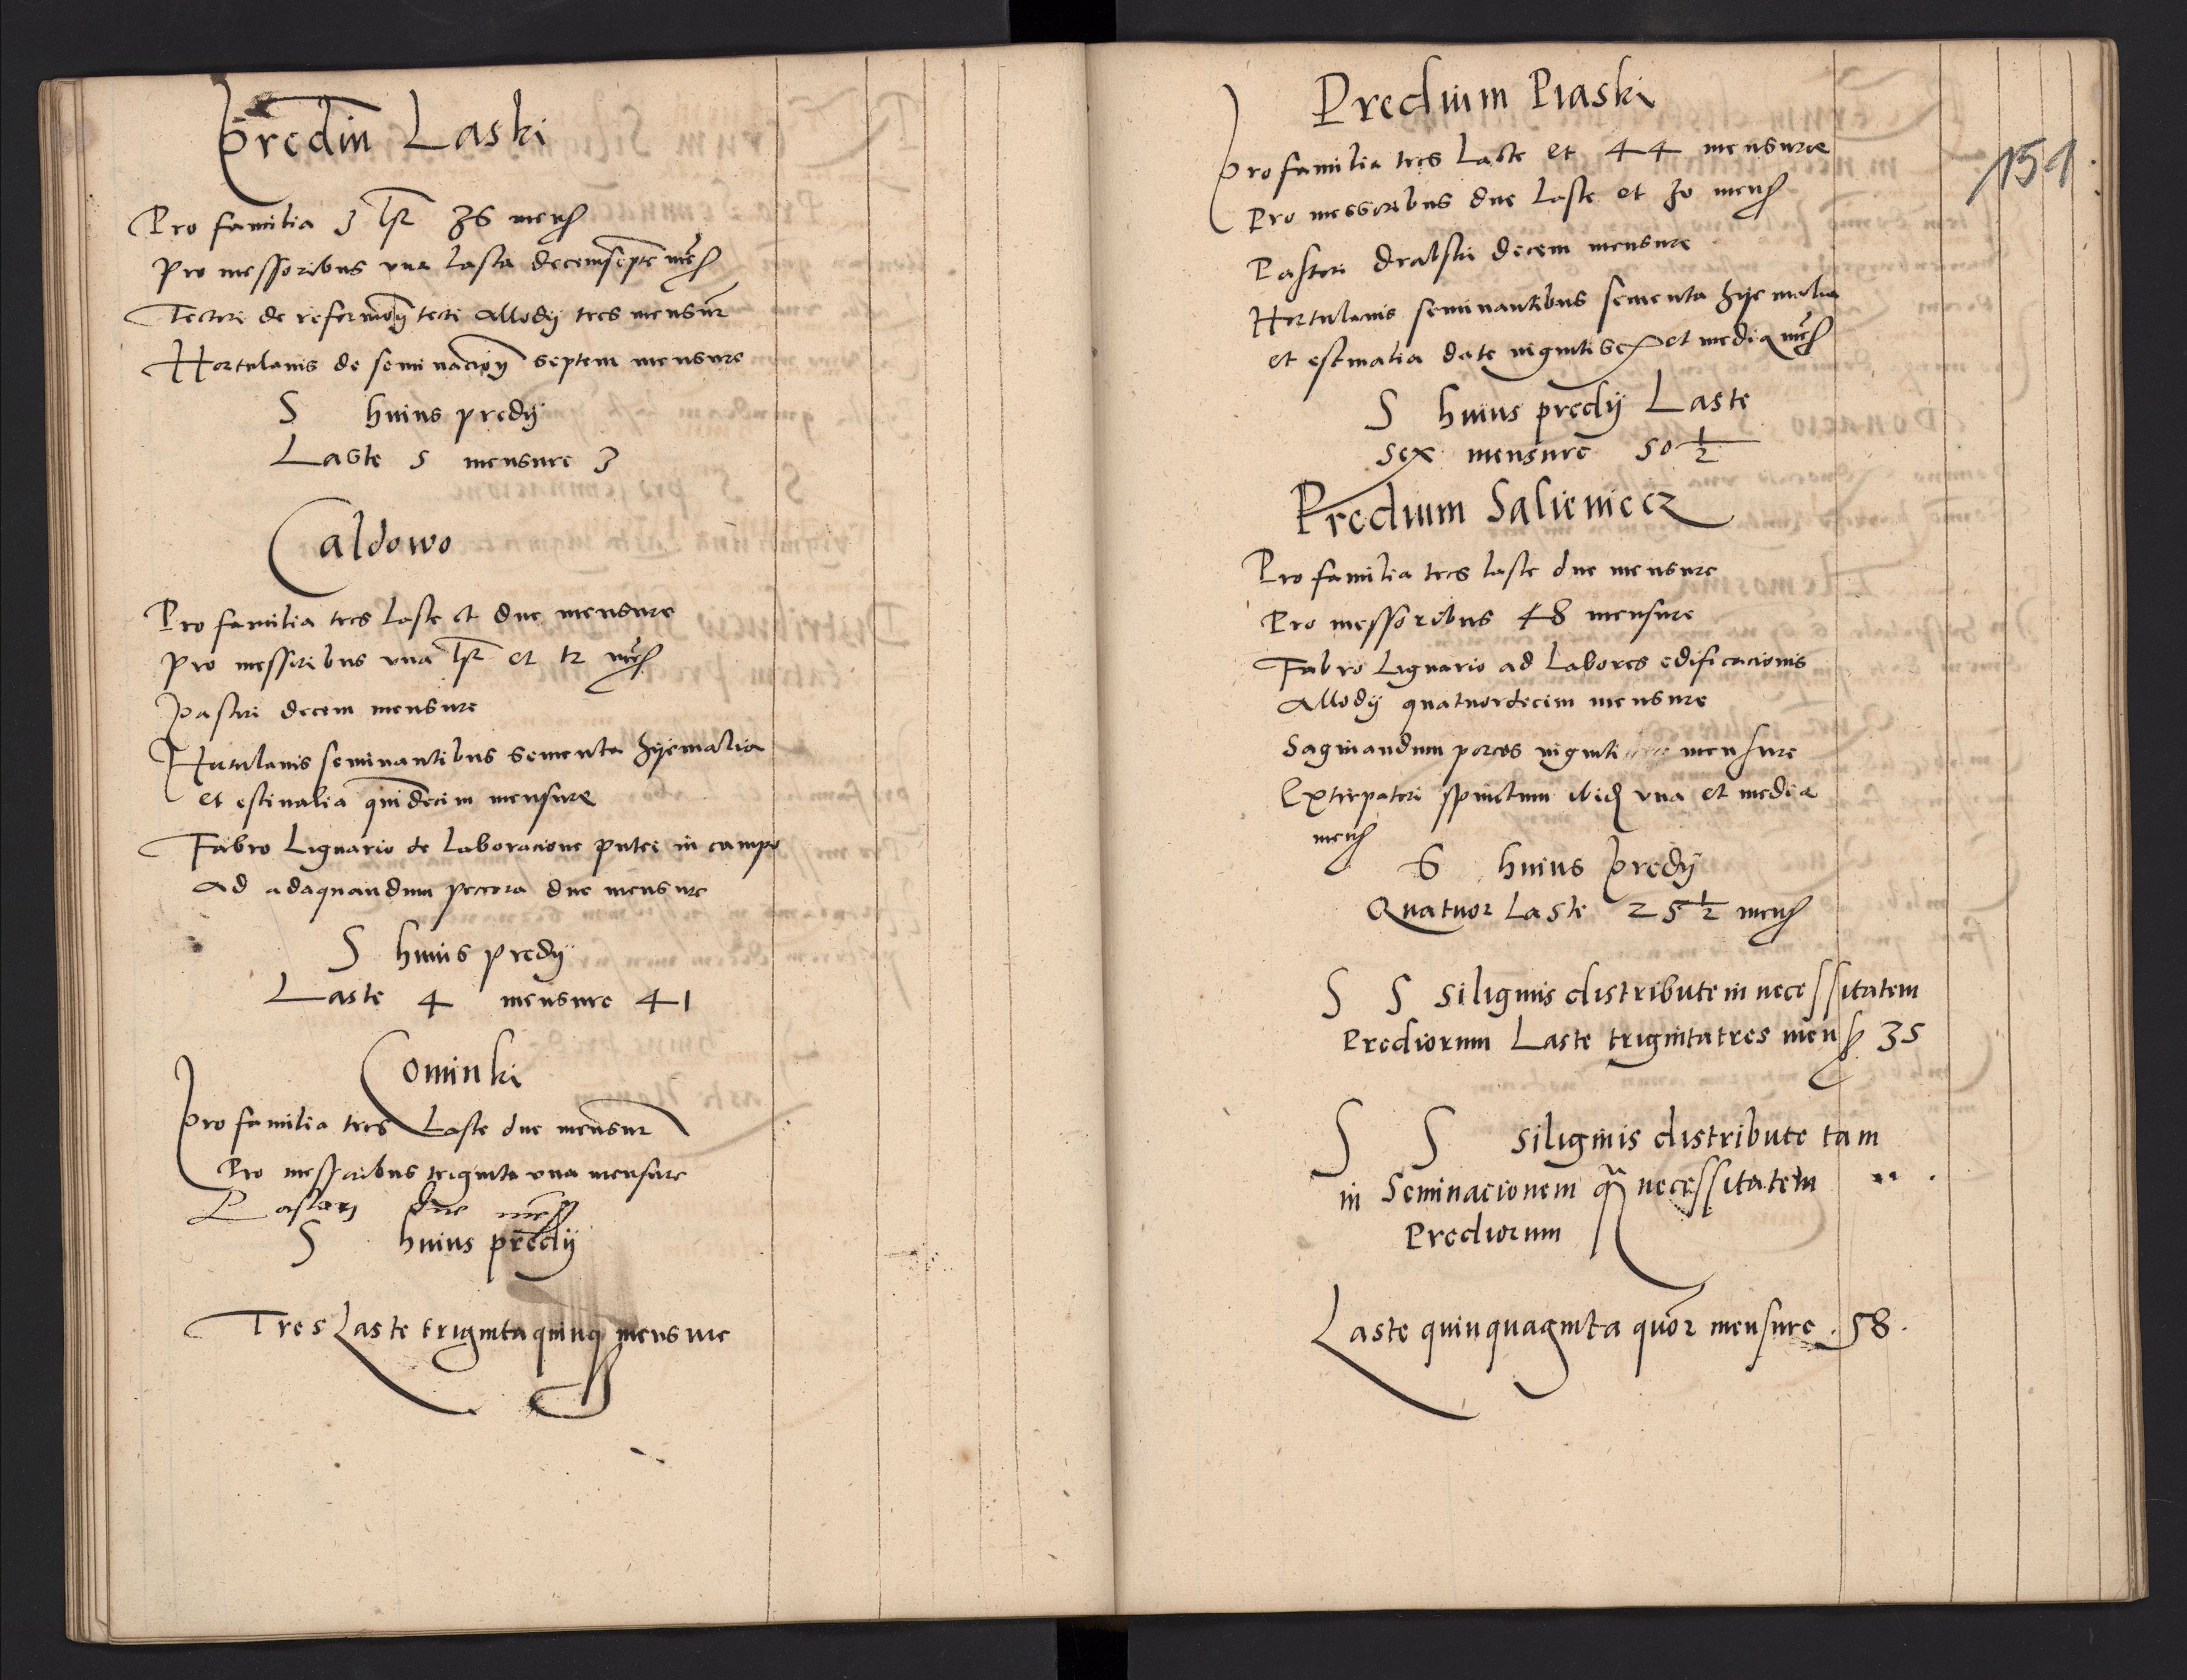 Prediu Laski
Pro familia 3 lst 36 mens
Pro messoribus una Lasta decemsepte mes
Tectori de reformaoy tecti Allodij tres mensur
Hortulanis de seminacioy septem mensure
S huius predij
Laste 5 mensure 3
Caldowo
Pro familia tres Laste et due mensure
Pro messoribus una lst et 12 mes
Pastori decem mensure
Hortulanis seminantibus sementa hyemalia
et estivalia quindecim mensure
Fabro Lignario de Laboracione putei in campo
Ad adaquandum peccora due mensure
S huius predij
Laste 4 mensure 41
Cominki
Pro familia tres Laste due mensur
Pro messoribus triginta una mensure
Pastori due mes
S huius predij
Tres Laste triginta quinq mensure
Predium Piaski
151
Pro familia tres Laste et 44 mensure
Pro messoribus due Laste et 30 mens
Pastori decem mensure
Hortulanis seminantibus sementa hyemalia
et estivalia date viginti sex et media mes
S huius predij Laste
sex mensure 50 1/2
Predium Salieniecz
Pro familia tres laste due mensure
Pro messoribus 48 mensure
Fabro Lignario ad Labores edificacionis
Allodij quatuordecim mensure
Saginandum porcos viginti mensure
Extirpatori spinetum ibid una et media
mens
S huius predij
Quatuor Laste 25 1/2 mens
S S siliginis distribute in necessitatem
Prediorum Laste trigintatres mens 35
S S siliginis distribute tam
in Seminacionem q necessitatem
Prediorum
Laste quinquaginta quor mensure . 58 .